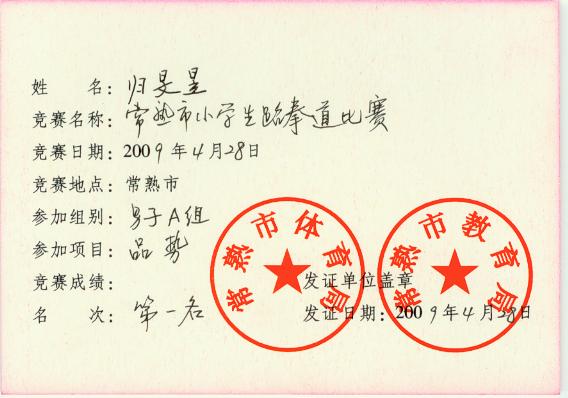 姓 名：归旻昱
竞赛名称：常熟市小学生跆拳道比赛
竞赛日期：2009年4月28日
竞赛地点：常熟市
参加组别：男子A组
参加项目：品势
竞赛成绩：
名 次：第一名
常熟市体育局
常熟市教育局
发证单位盖章
发证日期：2009年4月28日